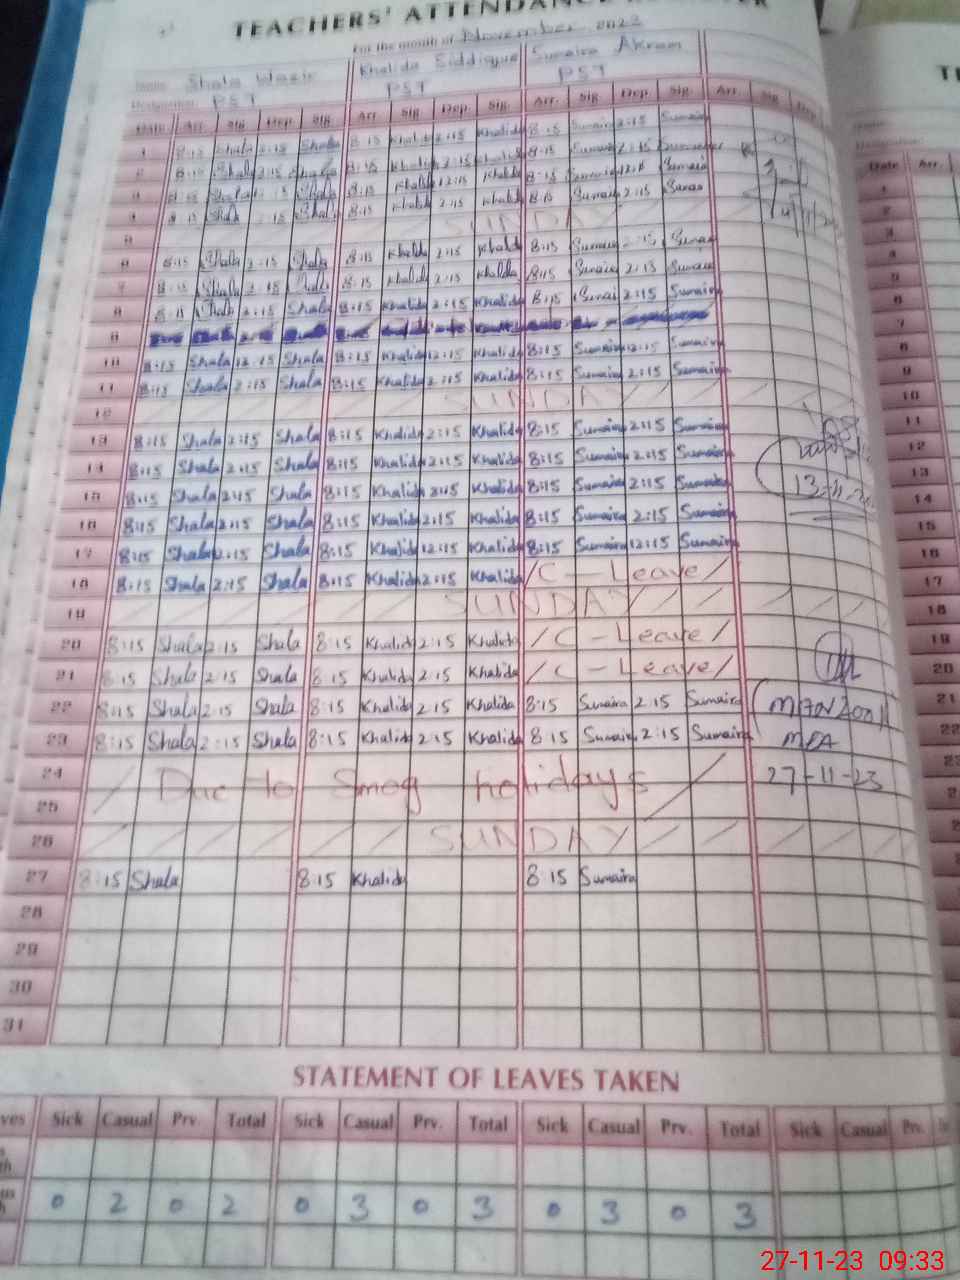 TEACHERS' ATTENDANCE
For the month of November 2023
Shala Wazir Khalida Siddique Sumaira Akram
Designation PST PST PST
Date Arr. Sig. Dep. Sig. Arr. Sig. Dep. Sig. Arr. Sig. Dep. Sig. Arr. Sig. Dep.
1 8:15 Shala 2:15 Shala 8:15 Khalida 2:15 Khalida 8:15 Sumaira 2:15 Sumaira
2 8:15 Shala 2:15 Shala 8:15 Khalida 2:15 Khalida 8:15 Sumaira 2:15 Sumaira
8:15 Shala Shala 8:15 Khalida 12:15 Khalida 8:15 Sumaira 12:15 Sumaira
4 8:15 Shala 2:15 Shala 8:15 Khalida 2:15 Khalida 8:15 Sumaira 2:15 Sumaira
SUNDAY
6 8:15 Shala 2:15 Shala 8:15 Khalida 2:15 Khalida 8:15 Sumaira 2:15 Sumaira
7 8:15 Shala 2:15 Shala 8:15 Khalida 2:15 Khalida 8:15 Sumaira 2:15 Sumaira
8 8:15 Shala 2:15 Shala 8:15 Khalida 2:15 Khalida 8:15 Sumai 2:15 Sumaira
10 8:15 Shala 12:15 Shala 8:15 Khalida 12:15 Khalida 8:15 Sumaira 12:15 Sumaira
11 8:15 Shala 2:15 Shala 8:15 Khalida 2:15 Khalida 8:15 Sumaira 2:15 Sumaira
12 SUNDAY
13 8:15 Shala 2:15 Shala 8:15 Khalida 2:15 Khalida 8:15 Sumaira 2:15 Sumaira
14 8:15 Shala 2:15 Shala 8:15 Khalida 2:15 Khalida 8:15 Sumaira 2:15 Sumaira
15 8:15 Shala 2:15 Shala 8:15 Khalida 2:15 Khalida 8:15 Sumaira 2:15 Sumaira 13-11-
16 8:15 Shala 2:15 Shala 8:15 Khalida 2:15 Khalida 8:15 Sumaira 2:15 Sumaira
17 8:15 Shala 12:15 Shala 8:15 Khalida 12:15 Khalida 8:15 Sumaira 12:15 Sumaira
18 8:15 Shala 2:15 Shala 8:15 Khalida 2:15 Khalida / C - Leave /
19 SUNDAY
20 8:15 Shala 2:15 Shala 8:15 Khalida 2:15 Khalida / C - Leave /
21 8:15 Shala 2:15 Shala 8:15 Khalida 2:15 Khalida / C - Leave /
22 8:15 Shala 2:15 Shala 8:15 Khalida 2:15 Khalida 8:15 Sumaira 2:15 Sumaira
23 8:15 Shala 2:15 Shala 8:15 Khalida 2:15 Khalida 8:15 Sumaira 2:15 Sumaira MEA
24 / Due to Smog holidays / 27-11-23
25
26 SUNDAY
27 8:15 Shala 8:15 Khalida 8:15 Sumaira
28
29
30
31
STATEMENT OF LEAVES TAKEN
Sick Casual Prv. Total Sick Casual Prv. Total Sick Casual Prv. Total Sick Casual Prv.
0 2 0 2 0 3 0 3 0 3 0 3
Date Arr.
1
2
3
4
5
6
7
8
9
10
11
12
13
14
15
16
17
18
19
20
21
22
27-11-23 09:33